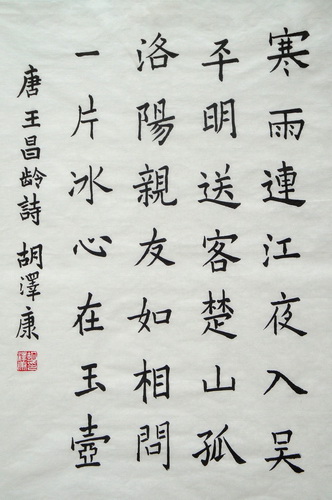 寒雨連江夜入吴
平明送客楚山孤
洛陽親友如相問
一片冰心在玉壺
唐王昌齡詩胡澤康